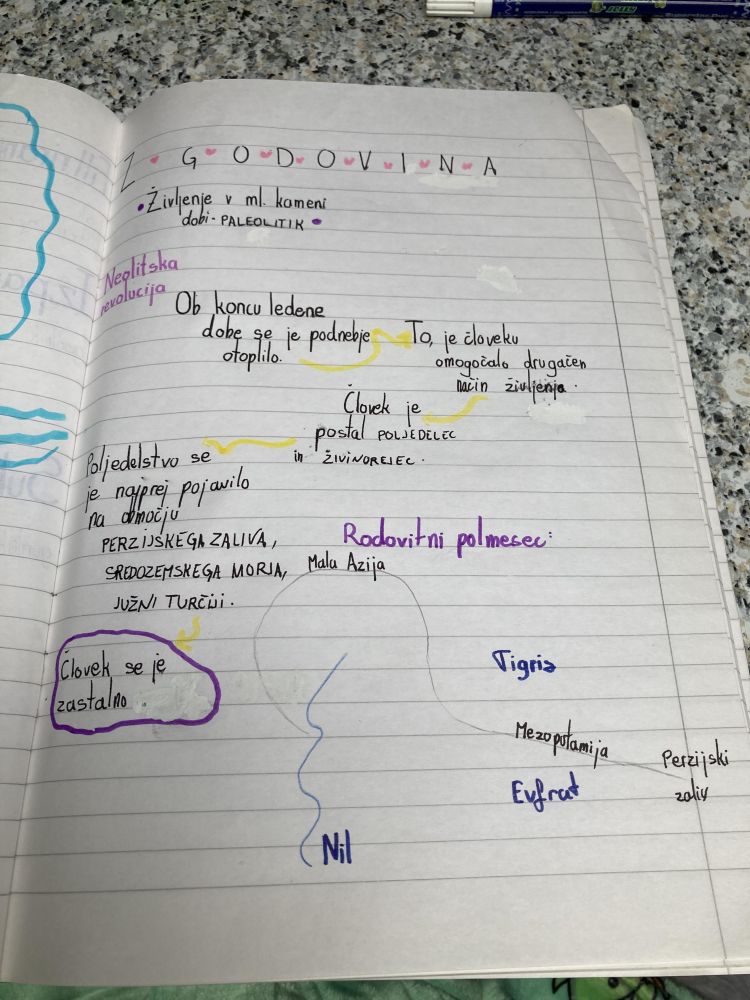 ZGODOVINA
Življenje v ml. kameni
dobi - PALEOLITIK
Neolitska
revolucija
Ob koncu ledene
dobe se je podnebje
otoplilo.
To, je človeku
omogočalo drugačen
način življenja.
Človek je
postal POLJEDELEC
in ŽIVINOREJEC.
Poljedelstvo se
je najprej pojavilo
na območju
PERZIJSKEGA ZALIVA,
SREDOZEMSKEGA MORJA,
JUŽNI TURČIJI.
Človek se je
zastalno
Rodovitni polmesec:
Mala Azija
Tigris
Mezopotamija
Perzijski
zaliv
Evfrat
Nil